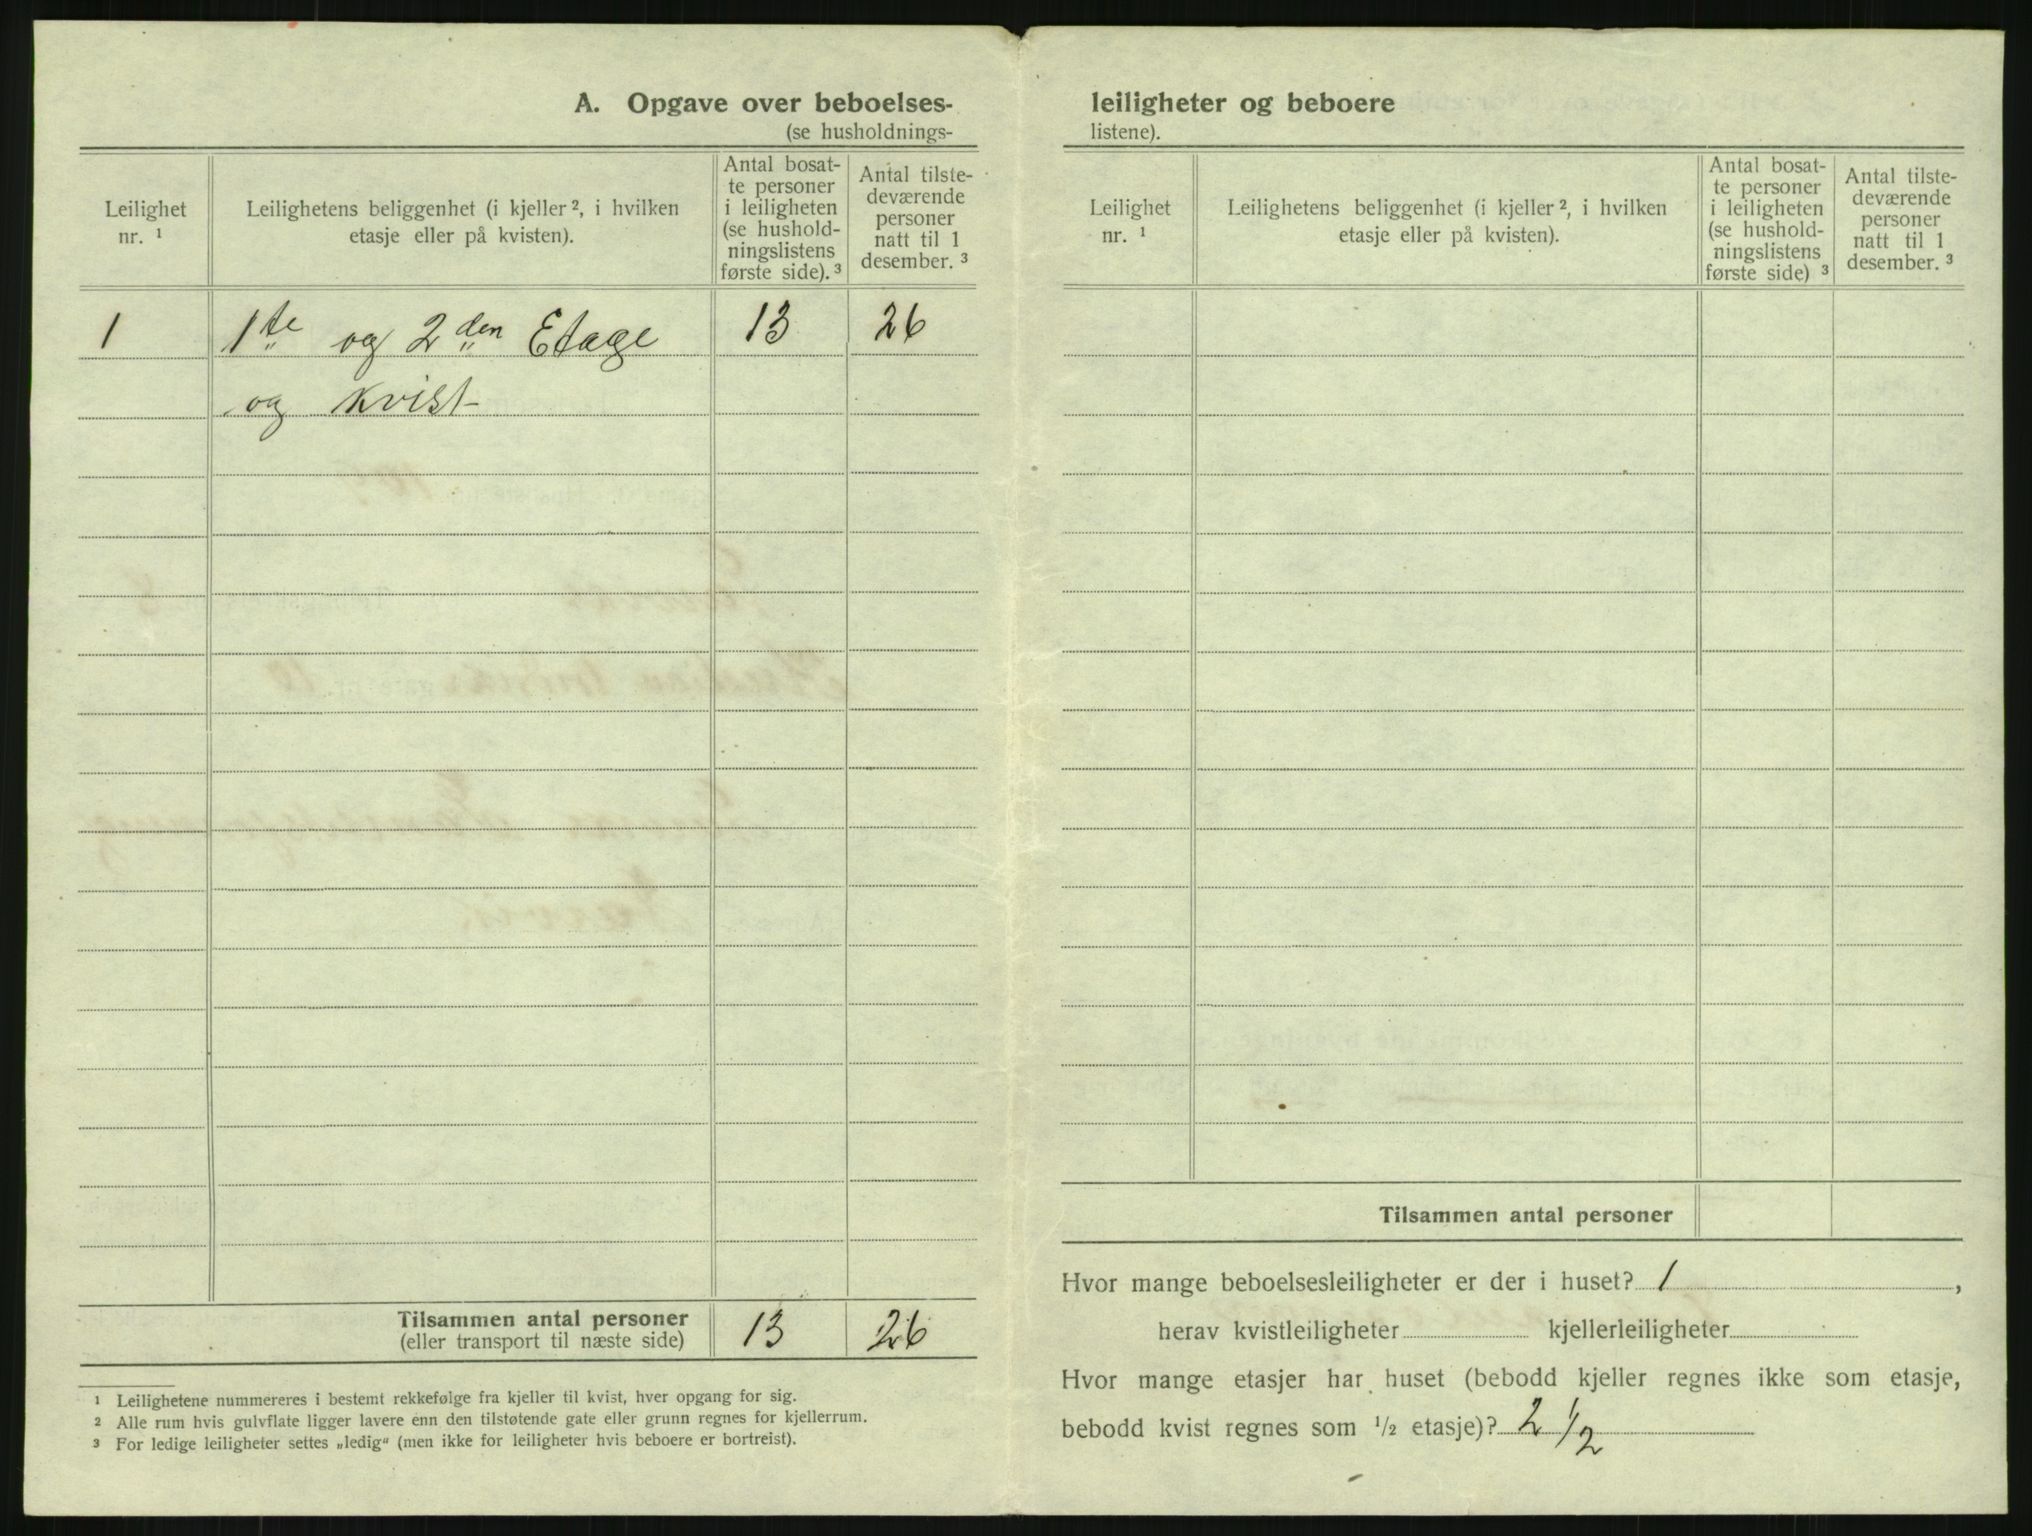 A. Opgave over beboelses-
(se husholdnings-
Leilighet nr. ¹
Leilighetens beliggenhet (i kjeller ², i hvilken etasje eller på kvisten).
Antal bosat-
te personer
i leiligheten
(se hushold-
ningslistens
første side). ³
Antal tilste-
deværende
personer
natt til 1
desember. ³
1 1te og 2den Etage 13 26
og kvist
Tilsammen antal personer 13 26
(eller transport til næste side)
¹ Leilighetene nummereres i bestemt rekkefølge fra kjeller til kvist, hver opgang for sig.
² Alle rum hvis gulvflate ligger lavere enn den tilstøtende gate eller grunn regnes for kjellerrum.
³ For ledige leiligheter settes „ledig“ (men ikke for leiligheter hvis beboere er bortreist).
leiligheter og beboere
listene).
Leilighet nr. ¹
Leilighetens beliggenhet (i kjeller ², i hvilken etasje eller på kvisten).
Antal bosat-
te personer
i leiligheten
(se hushold-
ningslistens
første side) ³
Antal tilste-
deværende
personer
natt til 1
desember. ³
Tilsammen antal personer
Hvor mange beboelsesleiligheter er der i huset? 1 ,
herav kvistleiligheter kjellerleiligheter
Hvor mange etasjer har huset (bebodd kjeller regnes ikke som etasje,
bebodd kvist regnes som ½ etasje)? 2 ½